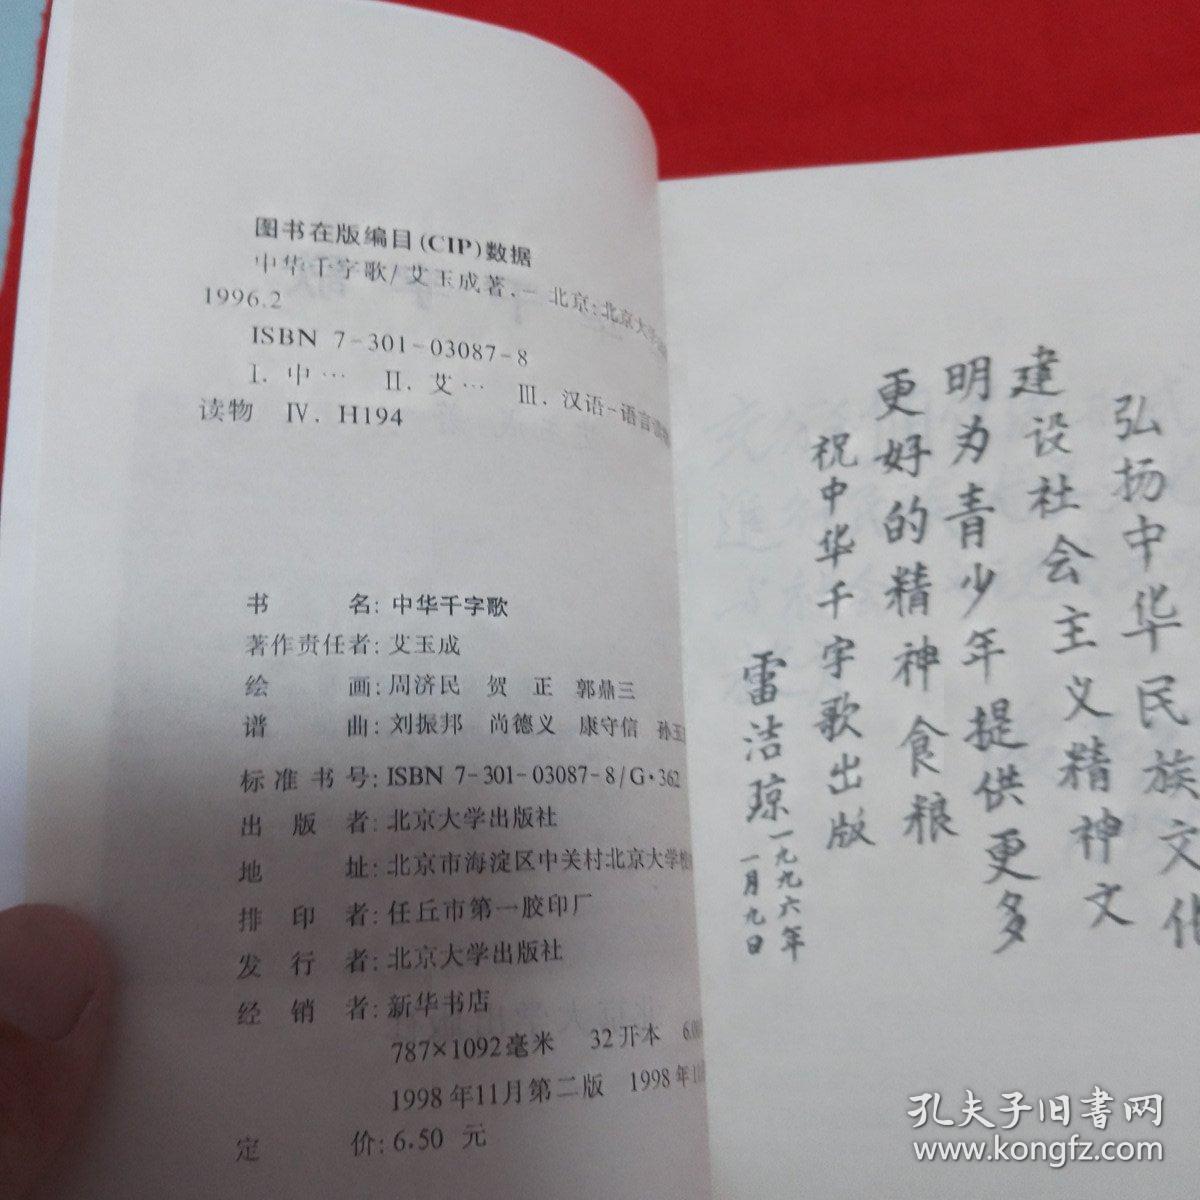 图书在版编目(CIP)数据
中华千字歌/艾玉成著.－北京:北京大学
1996.2
ISBN 7-301-03087-8
Ⅰ.中… Ⅱ.艾… Ⅲ.汉语-语言
读物 Ⅳ.H194
书 名:中华千字歌
著作责任者:艾玉成
绘 画:周济民 贺 正 郭鼎三
谱 曲:刘振邦 尚德义 康守信 孙玉
标准书号:ISBN 7-301-03087-8/G·362
出 版 者:北京大学出版社
地 址:北京市海淀区中关村北京大学校
排 印 者:任丘市第一胶印厂
发 行 者:北京大学出版社
经 销 者:新华书店
787×1092毫米 32开本 6.00
1998年11月第二版 1998年11
定 价:6.50 元
弘扬中华民族文化
建设社会主义精神文
明为青少年提供更多
更好的精神食粮
祝中华千字歌出版
雷洁琼
一九九六年
一月九日
孔夫子旧书网
www.kongfz.com